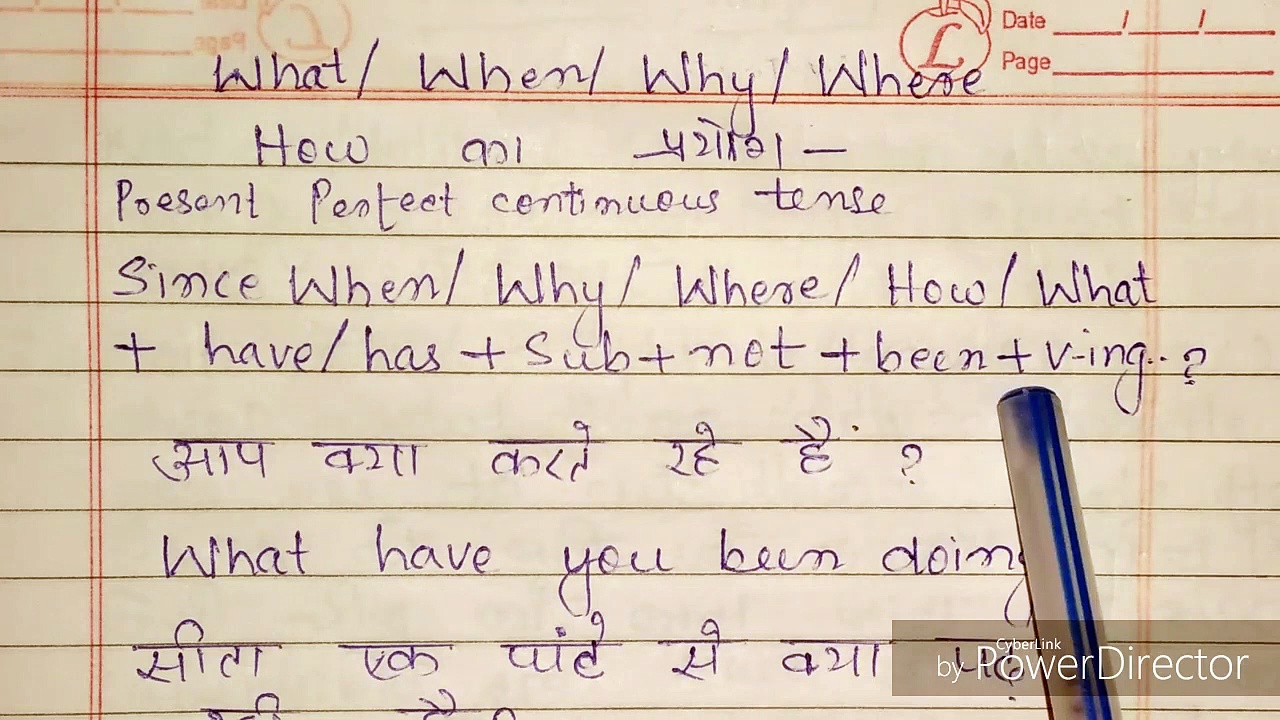 Date / /
Page
What/ When/ Why/ Where
How का प्रयोग –
Present Perfect continuous tense
Since When/ Why/ Where/ How/ What
+ have/has + Sub + not + been + v-ing..?
आप क्या करते रहे हैं ?
What have you been doing
सीता एक घांटे से क्या पढ़
CyberLink
by PowerDirector